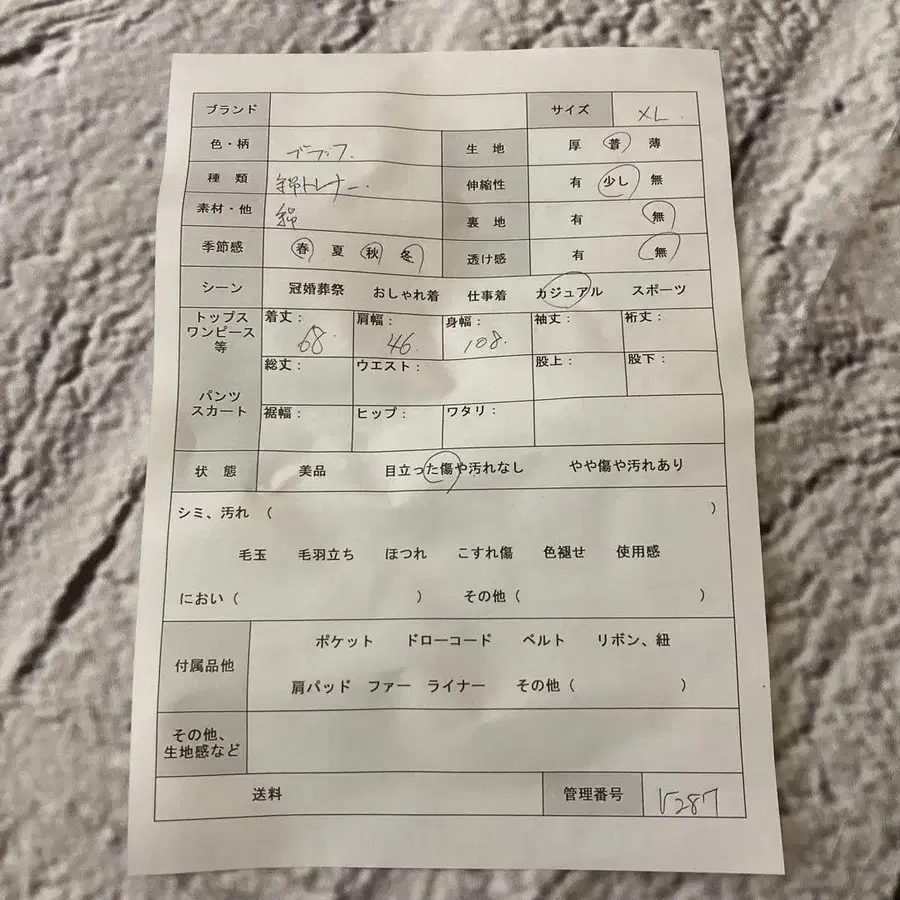 ブランド サイズ XL
色・柄 ブラック 生地 厚 普 薄
種類 綿トレーナー 伸縮性 有 少し 無
素材・他 綿 裏地 有 無
季節感 春 夏 秋 冬 透け感 有 無
シーン 冠婚葬祭 おしゃれ着 仕事着 カジュアル スポーツ
トップス
ワンピース
等
着丈: 68 肩幅: 46 身幅: 108 袖丈: 裄丈:
総丈: ウエスト: 股上: 股下:
パンツ
スカート
裾幅: ヒップ: ワタリ:
状態 美品 目立った傷や汚れなし やや傷や汚れあり
シミ、汚れ ( )
毛玉 毛羽立ち ほつれ こすれ傷 色褪せ 使用感
におい ( ) その他 ( )
付属品他
ポケット ドローコード ベルト リボン、紐
肩パッド ファー ライナー その他 ( )
その他、
生地感など
送料 管理番号 V287